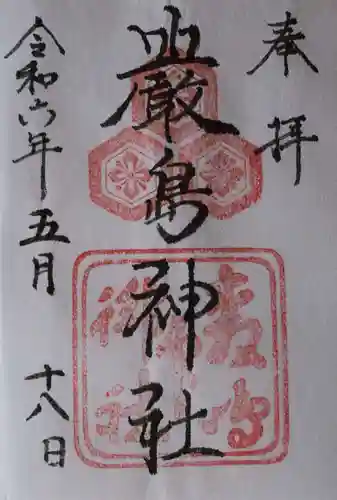 奉拝
嚴島神社
令和六年五月十八日